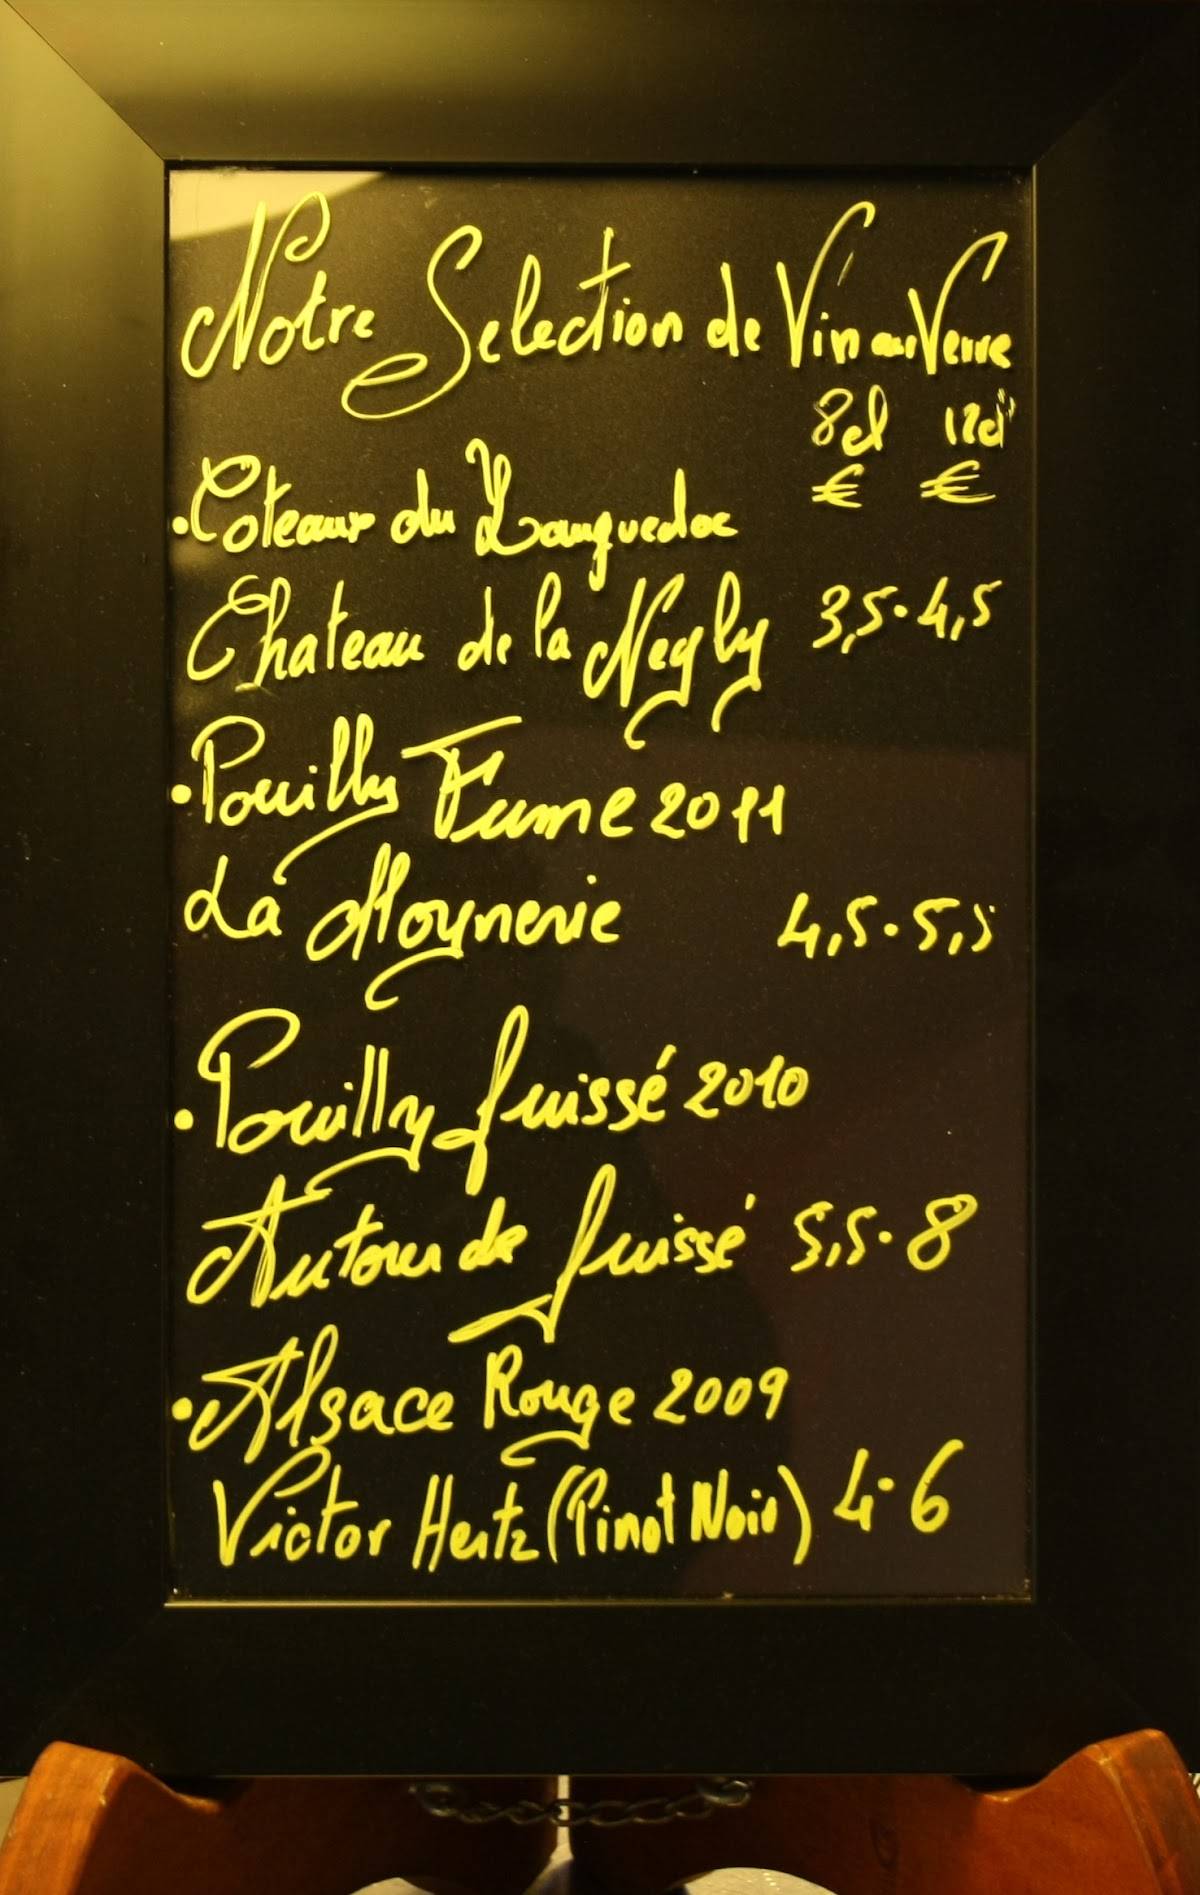 Notre Selection de Vin au Verre
8cl 12cl
€ €
• Coteaux du Languedoc
Chateau de la Negly 3,5 • 4,5
• Pouilly Fume 2011
La Moynerie 4,5 • 5,5
• Pouilly fuissé 2010
Autour de fuissé 5,5 • 8
• Alsace Rouge 2009
Victor Hertz (Pinot Noir) 4 • 6